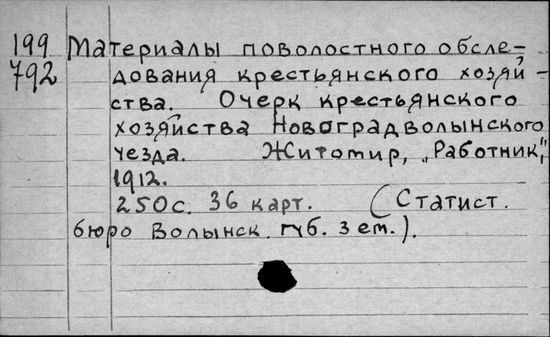 199 Материалы поволостного обсле-
792 дования крестьянского хозяй-
ства. Очерк крестьянского
хозяйства Новоградволынского
уезда. Житомир, „Работник”,
1912.
250с. 36 карт. (Статист.
бюро Волынск. губ. зем.).